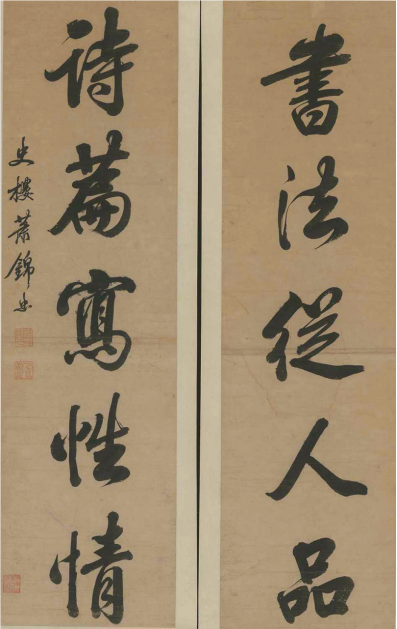 書法從人品
詩篇寫性情
史樓蕭錦忠